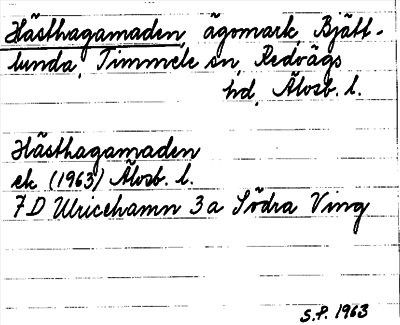 Hästhagamaden, ägomark, Bjätt-
lunda, Timmele sn, Redvägs
hd, Älvsb. l.
Hästhagamaden
ek (1963) Älvsb. l.
7D Ulricehamn 3a Södra Ving
S.P. 1963